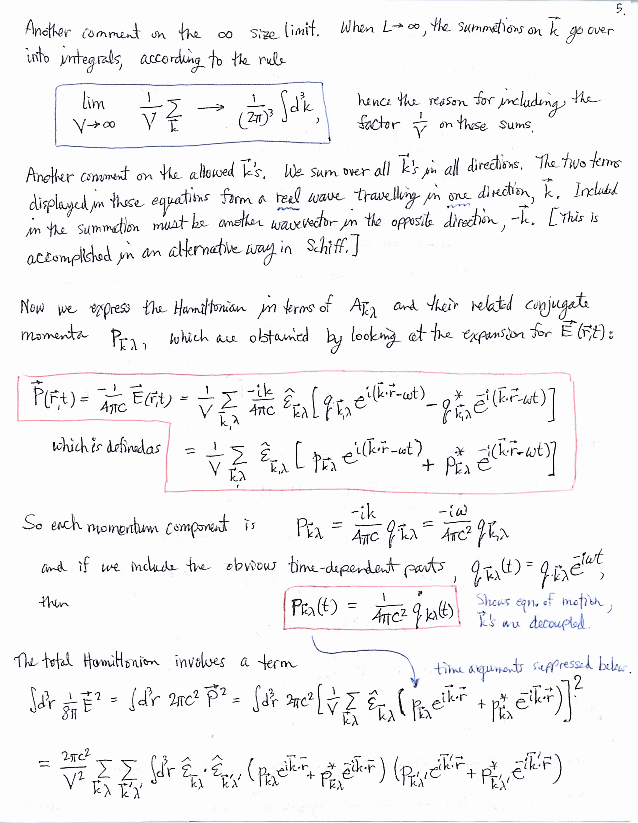 5.
Another comment on the ∞ size limit. When L→∞, the summations on k⃗ go over
into integrals, according to the rule
lim V→∞ 1/V Σ_k⃗ → 1/(2π)³ ∫d³k, hence the reason for including the
factor 1/V on these sums.
Another comment on the allowed k⃗'s. We sum over all k⃗'s in all directions. The two terms
displayed in these equations form a real wave travelling in one direction, k⃗. Included
in the summation must be another wavevector in the opposite direction, -k⃗. [This is
accomplished in an alternative way in Schiff.]
Now we express the Hamiltonian in terms of A_k⃗λ and their related conjugate
momenta P_k⃗λ, which are obtained by looking at the expansion for E⃗(r⃗,t):
P⃗(r⃗,t) = -1/4πc E⃗(r⃗,t) = 1/V Σ_k⃗,λ -ik/4πc ε̂_k⃗λ [q_k⃗,λ e^i(k⃗·r⃗-ωt) - q*_k⃗,λ e^-i(k⃗·r⃗-ωt)]
which is defined as = 1/V Σ_k⃗,λ ε̂_k⃗,λ [p_k⃗λ e^i(k⃗·r⃗-ωt) + p*_k⃗λ e^-i(k⃗·r⃗-ωt)]
So each momentum component is P_k⃗λ = -ik/4πc q_k⃗λ = -iω/4πc² q_k⃗,λ
and if we include the obvious time-dependent parts, q_k⃗λ(t) = q_k⃗λ e^-iωt,
then P_k⃗λ(t) = 1/4πc² q̇_kλ(t) Shows eqn. of motion,
k⃗'s are decoupled.
The total Hamiltonian involves a term time arguments suppressed below.
∫d³r 1/8π E⃗² = ∫d³r 2πc² P⃗² = ∫d³r 2πc² [1/V Σ_k⃗λ ε̂_k⃗λ (p_k⃗λ e^ik⃗·r⃗ + p*_k⃗λ e^-ik⃗·r⃗)]²
= 2πc²/V² Σ_k⃗λ Σ_k⃗'λ' ∫d³r ε̂_k⃗λ·ε̂_k⃗'λ' (p_k⃗λ e^ik⃗·r⃗ + p*_k⃗λ e^-ik⃗·r⃗) (p_k⃗'λ' e^ik⃗'·r⃗ + p*_k⃗'λ' e^-ik⃗'·r⃗)